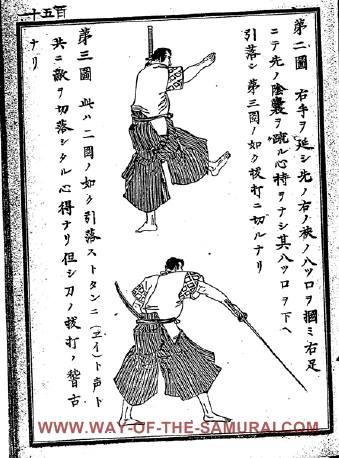 百五十
第二圖 右手ヲ延シ先ノ右ノ袂ノ八ツ口ヲ摑ミ右足
ニテ先ノ陰嚢ヲ蹴ル心持ヲナシ其八ツ口ヲ下ヘ
引落シ第三圖ノ如ク拔打ニ切ルナリ
第三圖 此ハ二圖ノ如ク引落ストタンニ(ヱイ)ト声ト
共ニ敵ヲ切落シタル心得ナリ但シ刀ノ拔打ノ稽古
ナリ
WWW.WAY-OF-THE-SAMURAI.COM